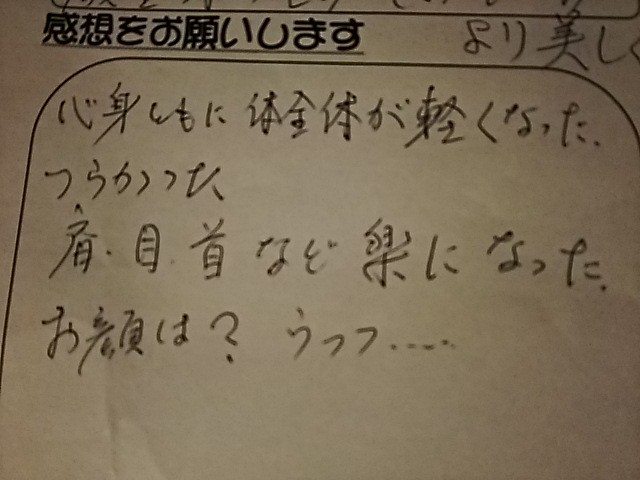 感想をお願いします
より美しく
心身ともに 体全体が軽くなった.
つらかった
肩.目.首など楽になった.
お顔は? うっフ.....